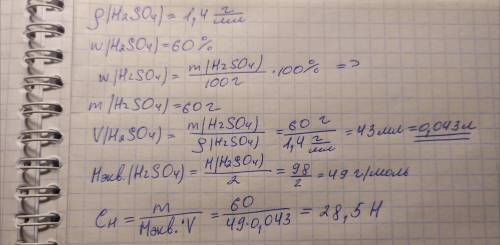 ρ(H2SO4) = 1,4 г/мл
w(H2SO4) = 60 %
w(H2SO4) = m(H2SO4)/100г · 100% =>
m(H2SO4) = 60 г
V(H2SO4) = m(H2SO4)/ρ(H2SO4) = 60 г/1,4 г/мл = 43 мл = 0,043 л
Мэкв.(H2SO4) = М(H2SO4)/2 = 98/2 = 49 г/моль
Сн = m/Мэкв.·V = 60/49·0,043 = 28,5 Н